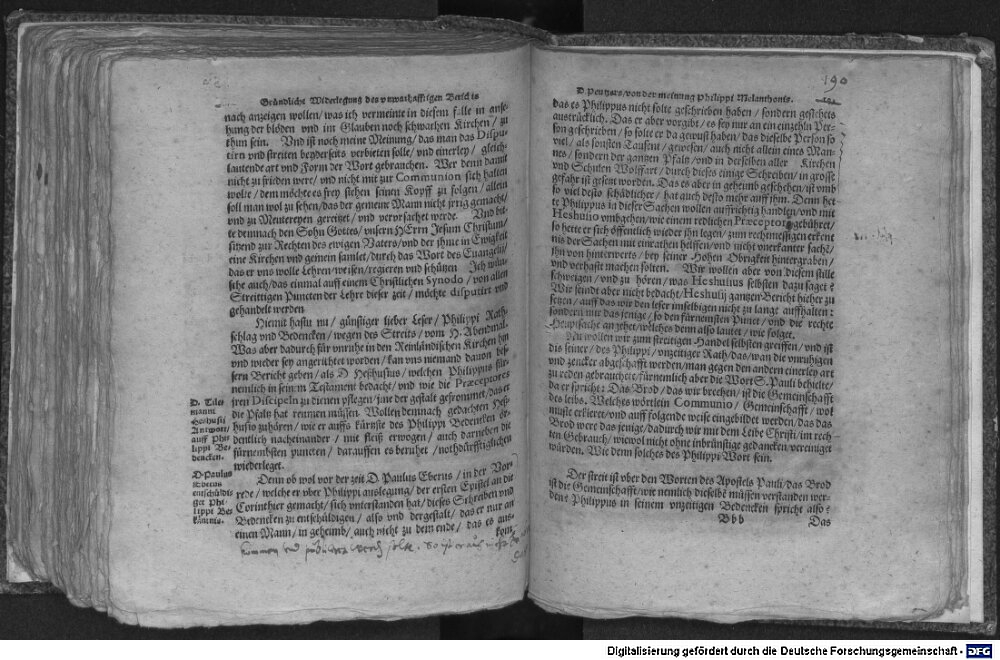 Gründliche Widerlegung des vnwarhafftigen Berichts
nach anzeigen wollen/ was ich vermeinte in diesem falle in anse-
hung der blöden vnd im Glauben noch schwachen Kirchen/ zu
thun sein. Vnd ist noch meine Meinung/ das man das Dispu-
tirn vnd streiten beyderseits verbieten solle/ vnd einerley/ gleich-
lautende art vnd Form der Wort gebrauchen. Wer denn damit
nicht zu frieden were/ vnd nicht mit zur Communion sich halten
wolte/ dem möchte es frey stehen seinen Kopff zu folgen/ allein
soll man wol zu sehen/ das der gemeine Mann nicht jrrig gemacht/
vnd zu Meutereyen gereitzet/ vnd verorsachet werde. Vnd bit-
te demnach den Sohn Gottes/ vnsern HErrn Jesum Christum/
sitzend zur Rechten des ewigen Vaters/ vnd der jhme in Ewigkeit
eine Kirchen vnd gemein samlet/ durch das Wort des Euangelij/
das er vns wolle Lehren/ weisen/ regieren vnd schützen Ich wün-
sche auch/ das einmal auff einem Christlichen Synodo/ von allen
Streittigen Puncten der Lehre dieser zeit/ möchte disputirt vnd
gehandelt werden
Hiemit hastu nu/ günstiger lieber Leser/ Philippi Rath-
schlag vnd Bedencken/ wegen des Streits/ vom H. Abendmal.
Was aber dadurch für vnruhe in den Reinländischen Kirchen hin
vnd wieder sey angerichtet worden/ kan vns niemand dauon bes-
sern Bericht geben/ als D Heshusius/ welchen Philippus für-
nemlich in seinem Testament bedacht/ vnd wie die Præceptores
jren Discipeln zu dienen pflegen/ jme der gestalt gefrommet/ das er
die Pfaltz hat reumen müssen. Wollen demnach gedachten Heß-
husio zuhören/ wie er auffs kürtzte des Philippi Bedencken or-
dentlich nacheinander/ mit fleiß erwogen/ auch darneben die
fürnembsten puncten/ darauffen es beruhet/ nothdürfftiglich
wiederleget.
D. Tile-
manni
Heshusij
Antwort/
auff Phi-
lippi Be-
dencken.
D. Paulus
Eberus
entschüldi-
get Phi-
lippi Be-
käntnis.
Denn ob wol vor der zeit D. Paulus Eberus/ in der Vor-
rede/ welche er vber Philippi auslegung/ der ersten Epistel an die
Corinthier gemacht/ sich vnterstanden hat/ dieses Schreiben vnd
Bedencken zu entschüldigen/ also vnd dergestalt/ das er nur an
einen Mann/ in geheimb/ auch nicht zu dem ende/ das es aus-
kom-
190
D. Peutzers/ von der meinung Philippi Melanthonis.
das es Philippus nicht solte geschrieben haben/ sondern gestehets
austrücklich. Das er aber vorgibt/ es sey nur an ein eintzeln Per-
son geschrieben/ so solte er da gewust haben/ das dieselbe Person so
viel/ als sonsten Tausent/ gewesen/ auch nicht allein eines Man-
nes/ sondern der gantzen Pfaltz/ vnd in derselben aller Kirchen
vnd Schulen Wolffart/ durch dieses einige Schreiben/ in grosse
gefahr ist gesetzt worden. Das es aber in geheimb geschehen/ ist vmb
so viel desto schädlicher/ hat auch desto mehr auff jhm. Denn het-
te Philippus in dieser Sachen wollen auffrichtig handlen/ vnd mit
Heshusio vmbgehen/ wie einem redlichen Præceptor gebühret/
so hette er sich öffentlich wieder jhn legen/ zum rechtmessigen erkent
nis der Sachen mit einrathen helffen/ vnd nicht vnerkanter sache/
jhn von hinterwerts/ bey seiner Hohen Obrigkeit hintergraben/
vnd verhast machen sollen. Wir wollen aber von diesem stille
schweigen/ vnd zu hören/ was Heshusius selbsten dazu saget?
Wir seindt aber nicht bedacht/ Heshusij gantzen Bericht hieher zu
setzen/ auff das wir den leser imselbigen nicht zu lange auffhalten:
sondern nur das jenige/ so den fürnemsten Punct/ vnd die rechte
Heuptsach angehet/ welches denn also lautet/ wie folget.
Nu wollen wir zum streitigen Handel selbsten greiffen/ vnd ist
dis seiner/ des Philippi/ vnzeitiger Rath/ das/ wan die vnruhigen
vnd zencker abgeschafft werden/ man gegen den andern einerley art
zu reden gebrauche/ fürnemlich aber die Wort S. Pauli behielte/
da er spricht: Das Brod/ das wir brechen/ ist die Gemeinschafft
des leibs. Welches wörtlein Communio/ Gemeinschafft/ wol
müste erkleret/ vnd auff folgende weise eingebildet werden/ das das
Brod were das jenige/ dadurch wir mit dem Leibe Christi/ im rech-
ten Gebrauch/ wiewol nicht ohne inbrünstige gedancken vereiniget
würden. Wie denn solches des Philippi Wort sein.
Der streit ist vber den Worten des Apostels Pauli/ das Brod
ist die Gemeinschafft/ wie nemlich dieselbe müssen verstanden wer-
den? Philippus in seinem vnzeitigen Bedencken spricht also?
Bbb
Das
Digitalisierung gefördert durch die Deutsche Forschungsgemeinschaft - DFG